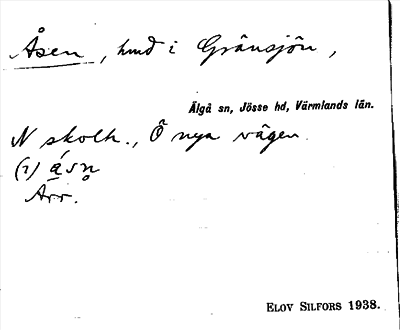 Åsen, hmd i Gränsjön,
Älgå sn, Jösse hd, Värmlands län.
N skolh., Ö nya vägen.
(1) á s n̥
Arr.
ELOV SILFORS 1938.